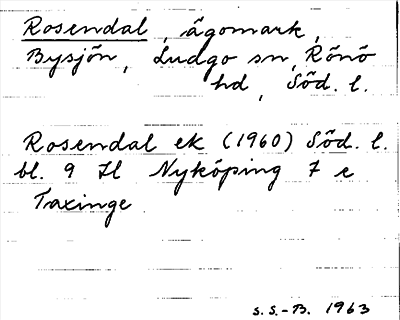 Rosendal, ägomark,
Bysjön, Ludgo sn, Rönö
hd, Söd. l.
Rosendal ek (1960) Söd. l.
bl. 9 Il Nyköping 7 e
Taxinge
S.S.-B. 1963